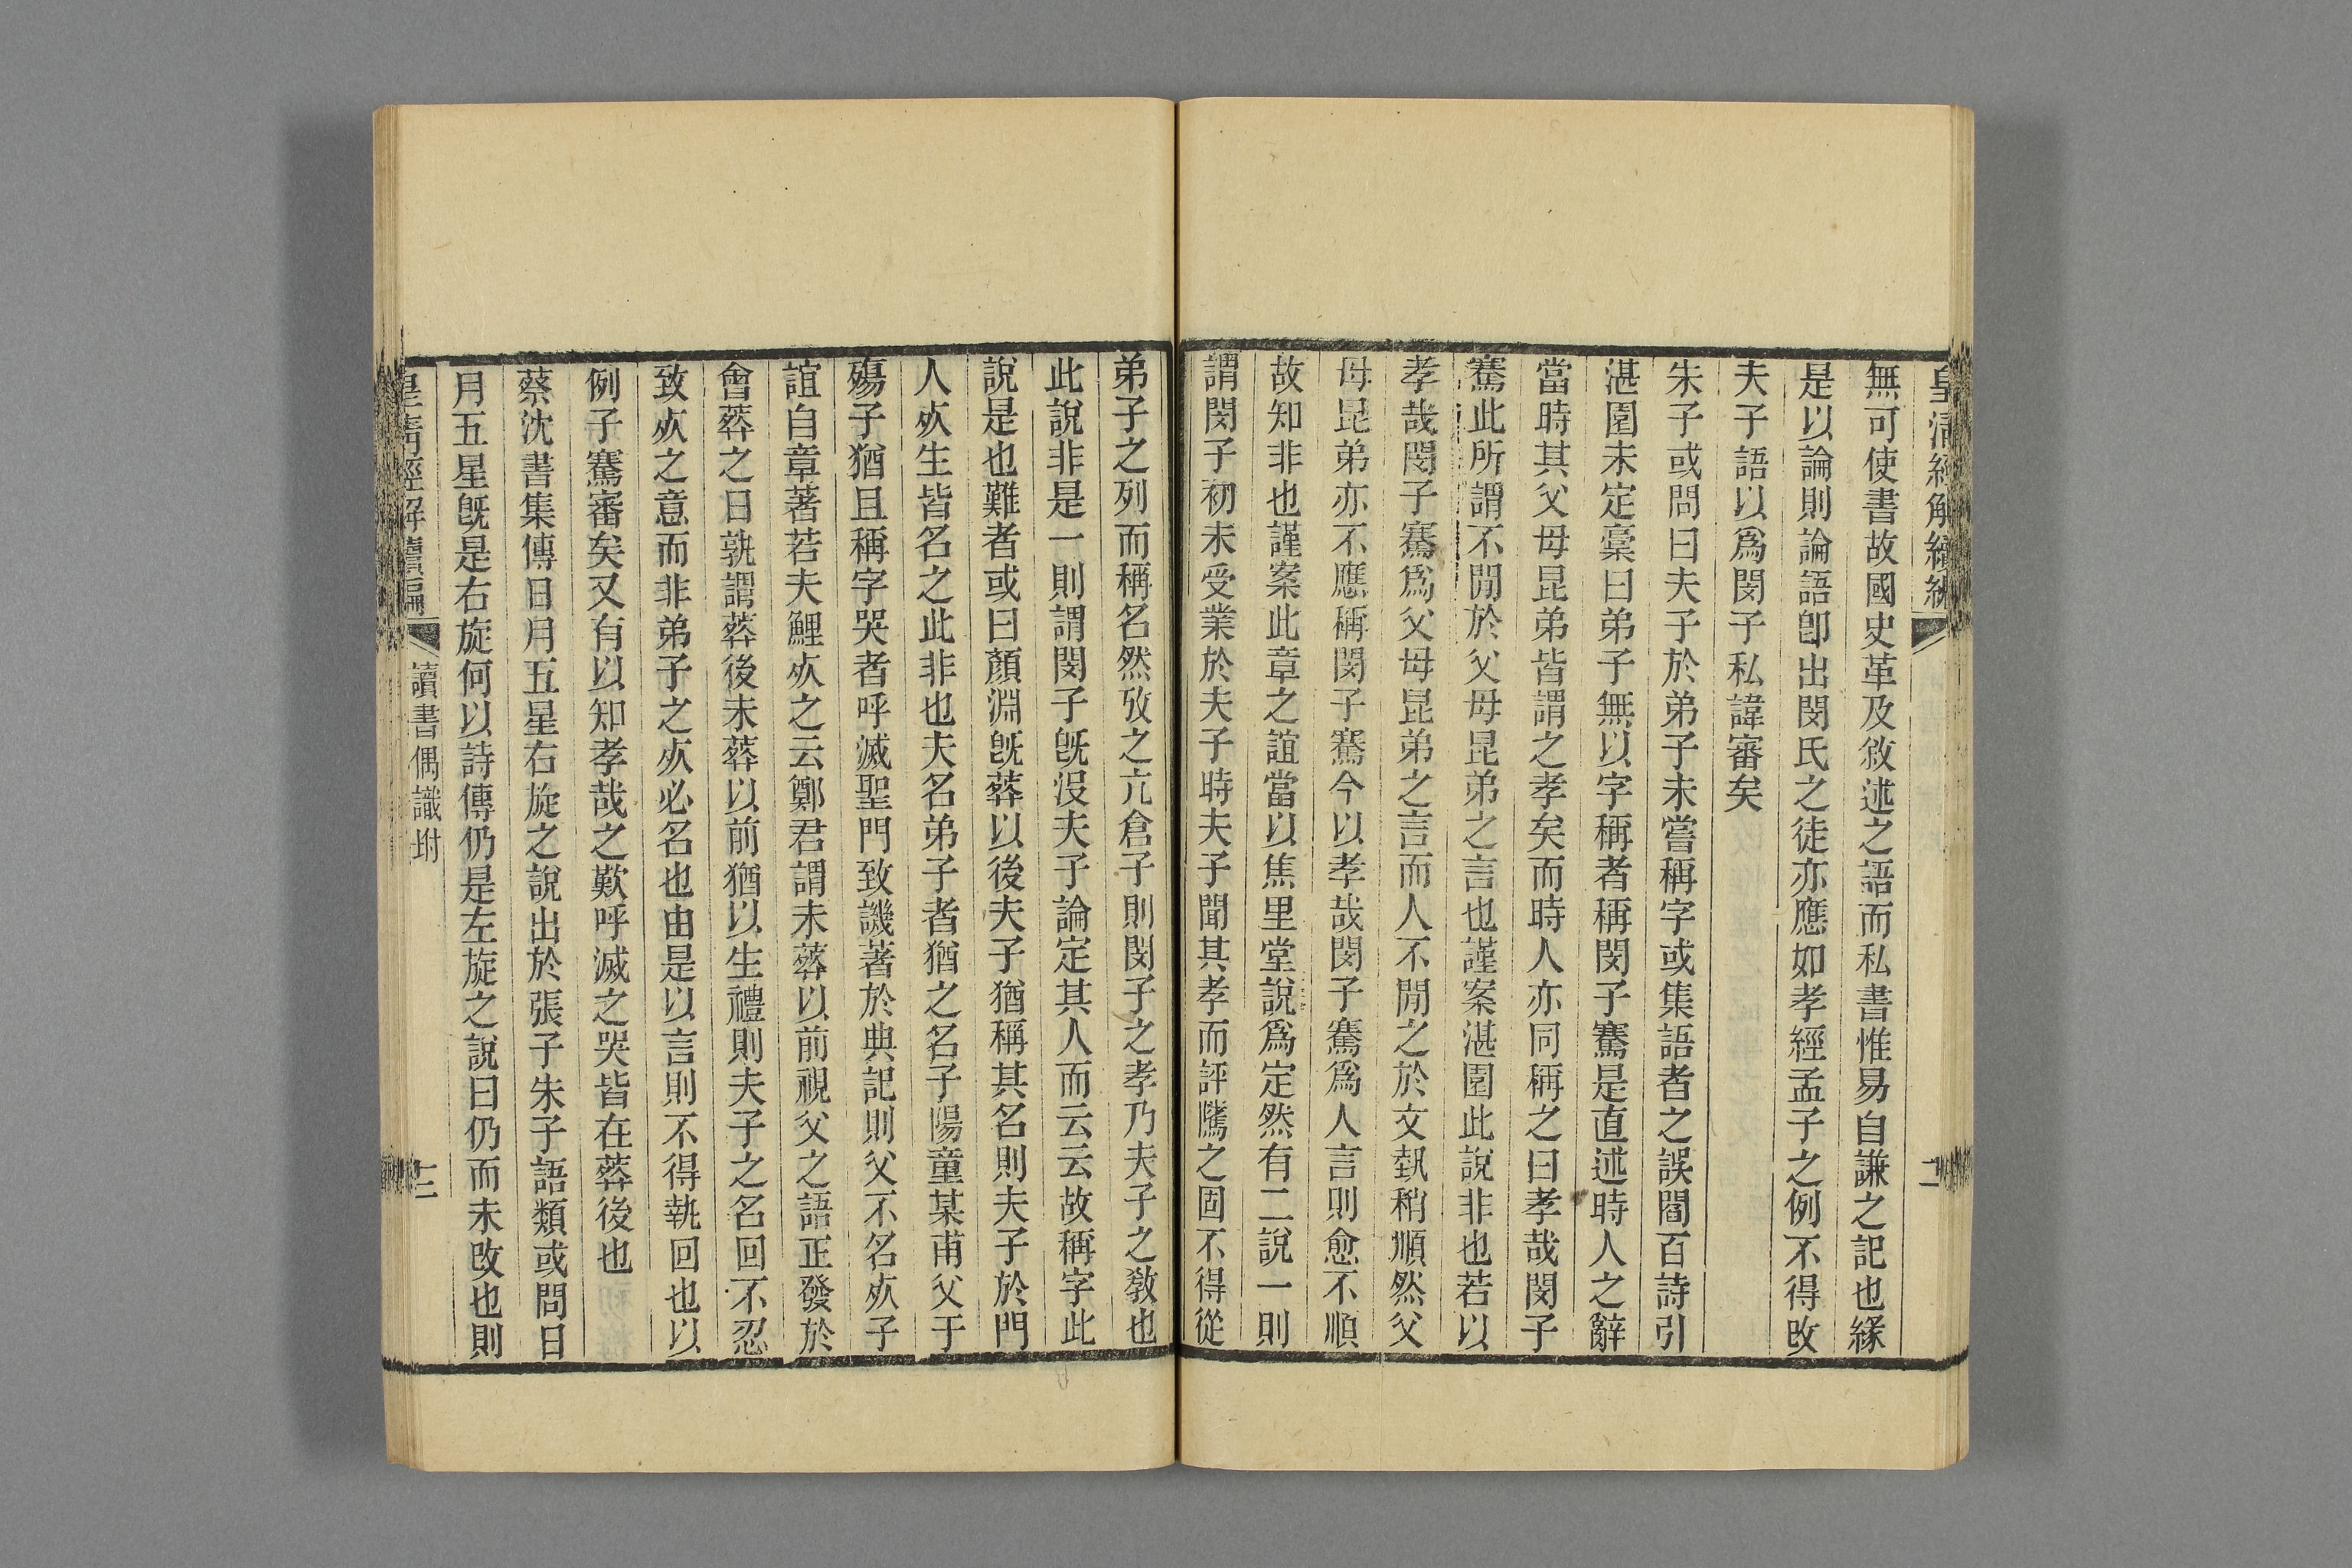 皇清經解續編
二
無可使書故國史革及敘述之語而私書惟易自謙之記也緣
是以論則論語卽出閔氏之徒亦應如孝經孟子之例不得改
夫子語以爲閔子私諱審矣
朱子或問曰夫子於弟子未嘗稱字或集語者之誤閻百詩引
湛園未定稾曰弟子無以字稱者稱閔子騫是直述時人之辭
當時其父母昆弟皆謂之孝矣而時人亦同稱之曰孝哉閔子
騫此所謂不閒於父母昆弟之言也謹案湛園此說非也若以
孝哉閔子騫爲父母昆弟之言而人不閒之於文埶稍順然父
母昆弟亦不應稱閔子騫今以孝哉閔子騫爲人言則愈不順
故知非也謹案此章之誼當以焦里堂說爲定然有二說一則
謂閔子初未受業於夫子時夫子聞其孝而評騭之固不得從
弟子之列而稱名然攷之亢倉子則閔子之孝乃夫子之敎也
此說非是一則謂閔子旣沒夫子論定其人而云云故稱字此
說是也難者或曰顏淵旣葬以後夫子猶稱其名則夫子於門
人㱙生皆名之此非也夫名弟子者猶之名子陽童某甫父于
殤子猶且稱字哭者呼滅聖門致譏著於典記則父不名㱙子
誼自章著若夫鯉㱙之云鄭君謂未葬以前視父之語正發於
會葬之日孰謂葬後未葬以前猶以生禮則夫子之名回不忍
致㱙之意而非弟子之㱙必名也由是以言則不得執回也以
例子騫審矣又有以知孝哉之歎呼滅之哭皆在葬後也
蔡沈書集傳日月五星右旋之說出於張子朱子語類或問日
月五星旣是右旋何以詩傳仍是左旋之說曰仍而未改也則
皇清經解續編
讀書偶識坿